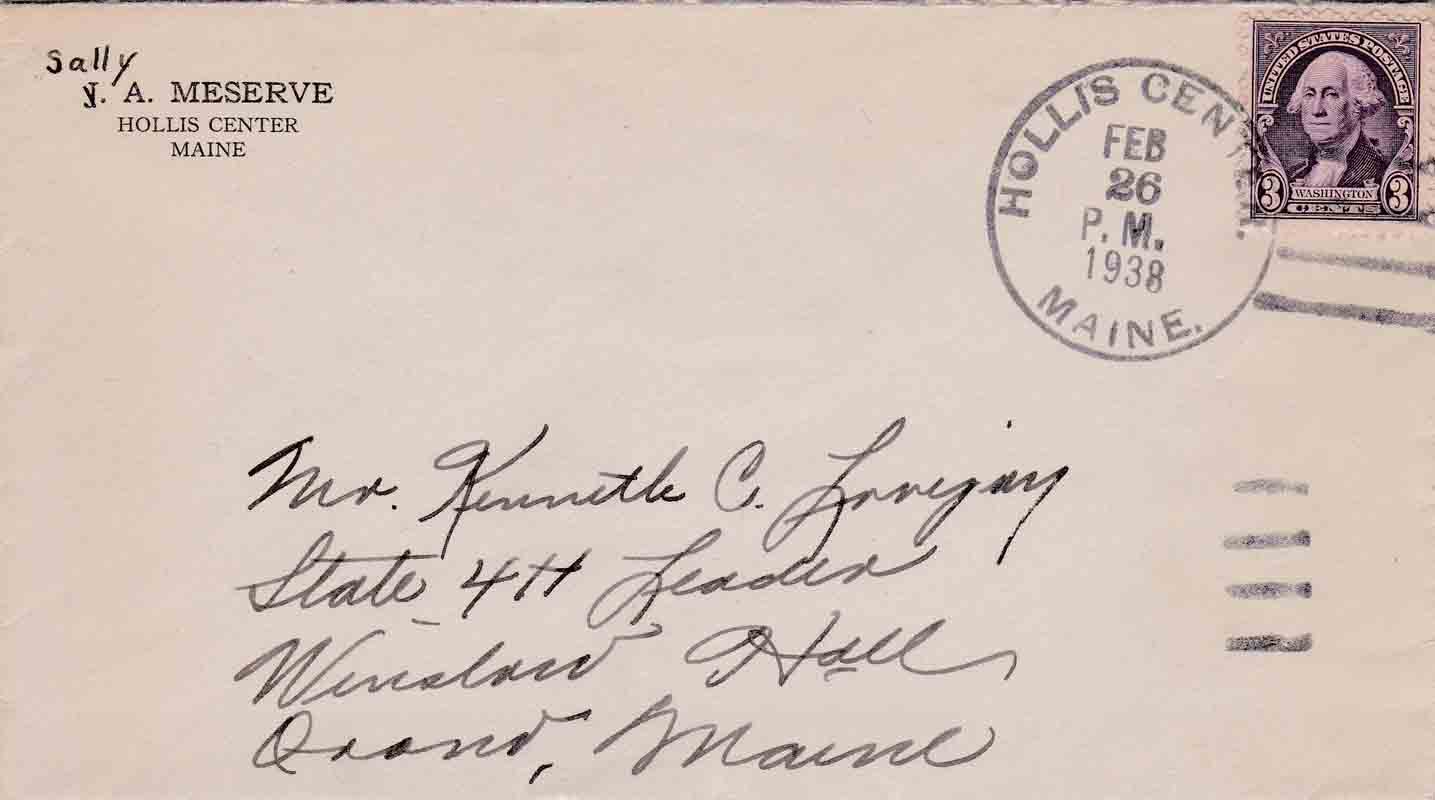 Sally
J. A. MESERVE
HOLLIS CENTER
MAINE
HOLLIS CENTER.
FEB
26
P. M.
1938
MAINE.
UNITED STATES POSTAGE
3 WASHINGTON 3
CENTS
Mr. Kenneth C. Lovejoy
State 4H Leader
Winslow Hall
Orono, Maine